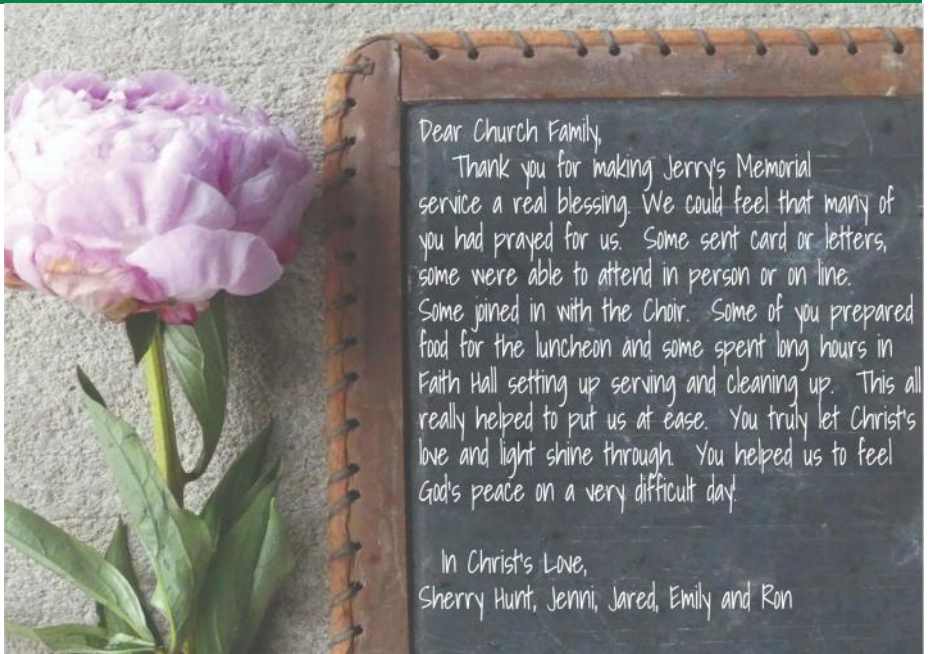 Dear Church Family,
Thank you for making Jerry's Memorial
service a real blessing. We could feel that many of
you had prayed for us. Some sent card or letters,
some were able to attend in person or on line.
Some joined in with the Choir. Some of you prepared
food for the luncheon and some spent long hours in
Faith Hall setting up serving and cleaning up. This all
really helped to put us at ease. You truly let Christ's
love and light shine through. You helped us to feel
God's peace on a very difficult day!
In Christ's Love,
Sherry Hunt, Jenni, Jared, Emily and Ron